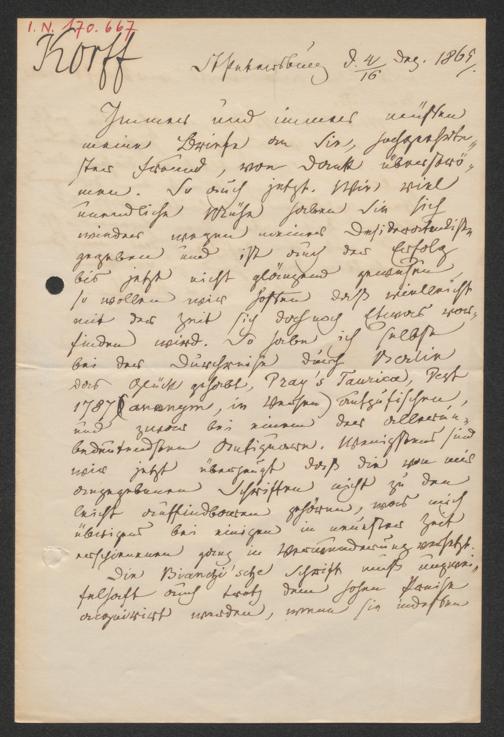 I.N. 170.667
Korff
St Petersburg d. 4/16 Dez. 1865.
Immer und immer müssten
meine Briefe an Sie, hochgeehrte-
ster Freund, von Dank überströ-
men. So auch jetzt. Wie viel
unendliche Mühe haben Sie sich
wieder wegen meiner Desideratenliste
gegeben und ist auch der Erfolg
bis jetzt nicht glänzend gewesen,
so wollen wir hoffen daß vielleicht
mit der Zeit sich doch noch Etwas vor-
finden wird. So habe ich selbst
bei der Durchreise durch Berlin
das Glück gehabt, Pray's Taurica, Pest
1787 (anonym, in Versen) aufzufischen,
und zwar bei einem der allerun-
bedeutendsten Antiquare. Wenigstens sind
wir jetzt überzeugt daß die von mir
angegebenen Schriften nicht zu den
leicht auffindbaren gehören, was mich
übrigens bei einigen in neuester Zeit
erschienenen ganz in Verwunderung versetzt.
Die Bianchi'sche Schrift muß unzwei-
felhaft auch trotz dem hohen Preise
acquirirt werden, wenn sie indessen